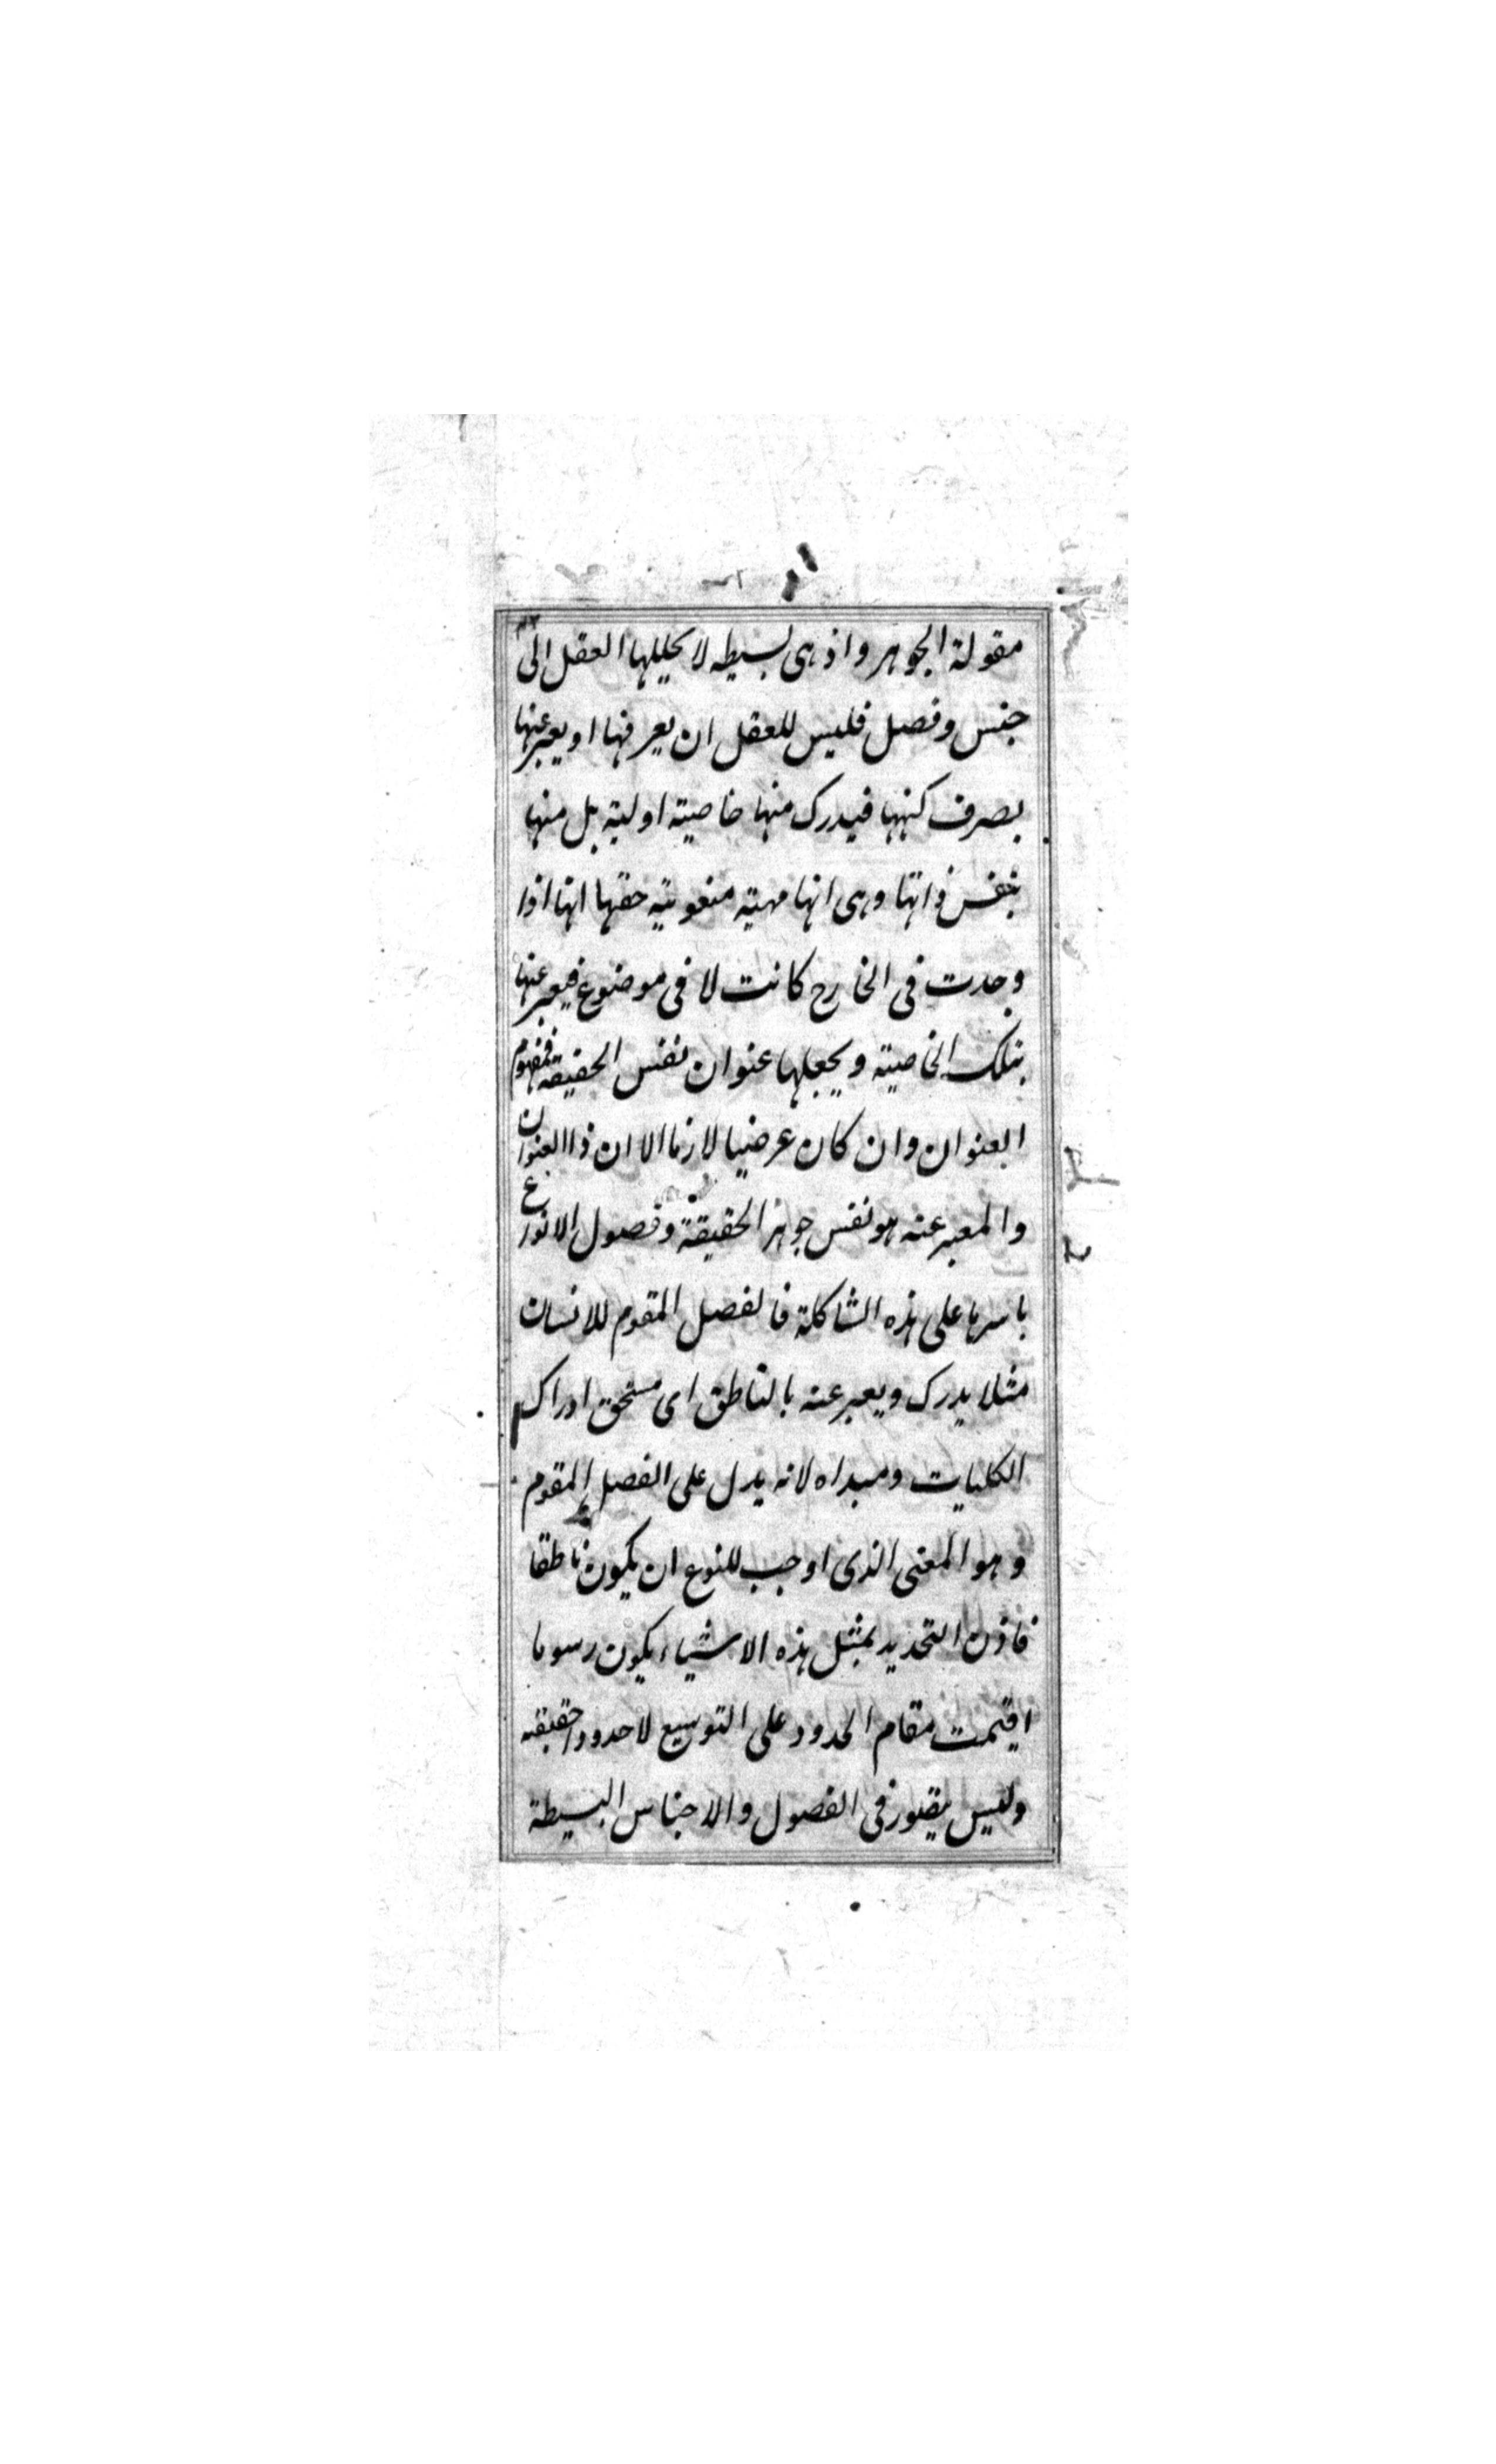 مقولة الجوهر واذ هى بسيطه لا يحليلها العقل الى
جنس وفصل فليس للعقل ان يعرفها او يعبر عنها
بصرف كنهها فيدرك منها خاصية اولية بل منها
بنفس ذاتها وهى انها مهية منعوتية حقها انها اذا
وجدت فى الخارج كانت لا فى موضوع فيعبر عنها
بتلك الخاصية ويجعلها عنوان نفس الحقيقة فمفهوم
العنوان وان كان عرضيا لازما الا ان ذا العنوان
والمعبر عنه هو نفس جوهر الحقيقة وفصول الانواع
باسرها على هذه الشاكلة فالفصل المقوم للانسان
مثلا يدرك ويعبر عنه بالناطق اى مستحق ادراك
الكليات ومبداه لانه يدل على الفصل المقوم
وهو المعنى الذى اوجب للنوع ان يكون ناطقا
فاذن التحديد بمثل هذه الاشياء يكون رسوما
اقيمت مقام الحدود على التوسيع لا حدودا حقيقه
وليس يتصور فى الفصول والاجناس البسيطة